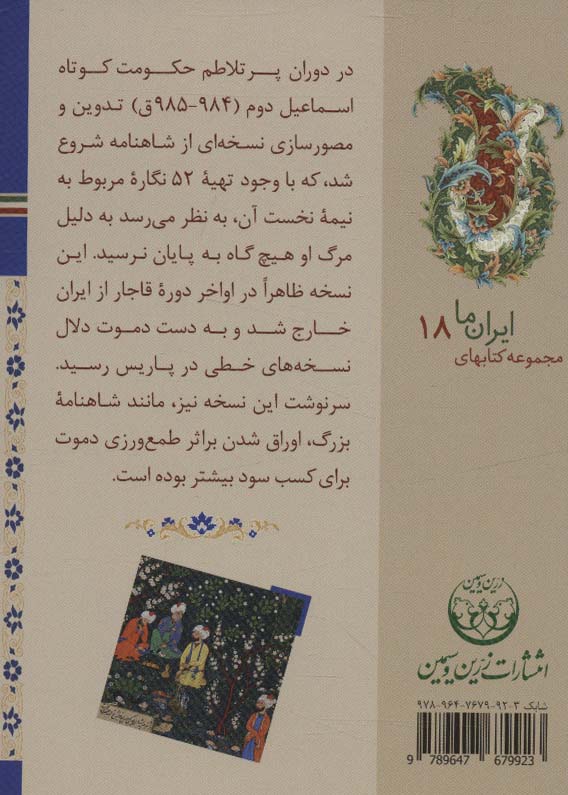 در دوران پر تلاطم حکومت کوتاه
اسماعیل دوم (۹۸۴-۹۸۵ق) تدوین و
مصورسازی نسخه‌ای از شاهنامه شروع
شد، که با وجود تهیهٔ ۵۲ نگارهٔ مربوط به
نیمهٔ نخست آن، به نظر می‌رسد به دلیل
مرگ او هیچ گاه به پایان نرسید. این
نسخه ظاهراً در اواخر دورهٔ قاجار از ایران
خارج شد و به دست دموت دلال
نسخه‌های خطی در پاریس رسید.
سرنوشت این نسخه نیز، مانند شاهنامهٔ
بزرگ، اوراق شدن براثر طمع‌ورزی دموت
برای کسب سود بیشتر بوده است.
ایران ما ۱۸
مجموعه کتابهای
زرین و سیمین
انتشارات زرین و سیمین
شابک ۳-۹۲-۷۶۷۹-۹۶۴-۹۷۸
9 789647 679923